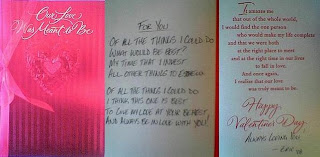 Our Love
Was Meant to Be
For You
Of all the things I could do
What would be best?
My time that I invest
All other things to
Of all the things I could do
I think this one is best
To give my love at your behest,
And always be in love with you!
It amazes me
that out of the whole world,
I would find the one person
who would make my life complete
and that we were both
at the right place to meet
and at the right time in our lives
to fall in love.
And once again,
I realize that our love
was truly meant to be.
Happy
Valentine's Day,
Always loving you